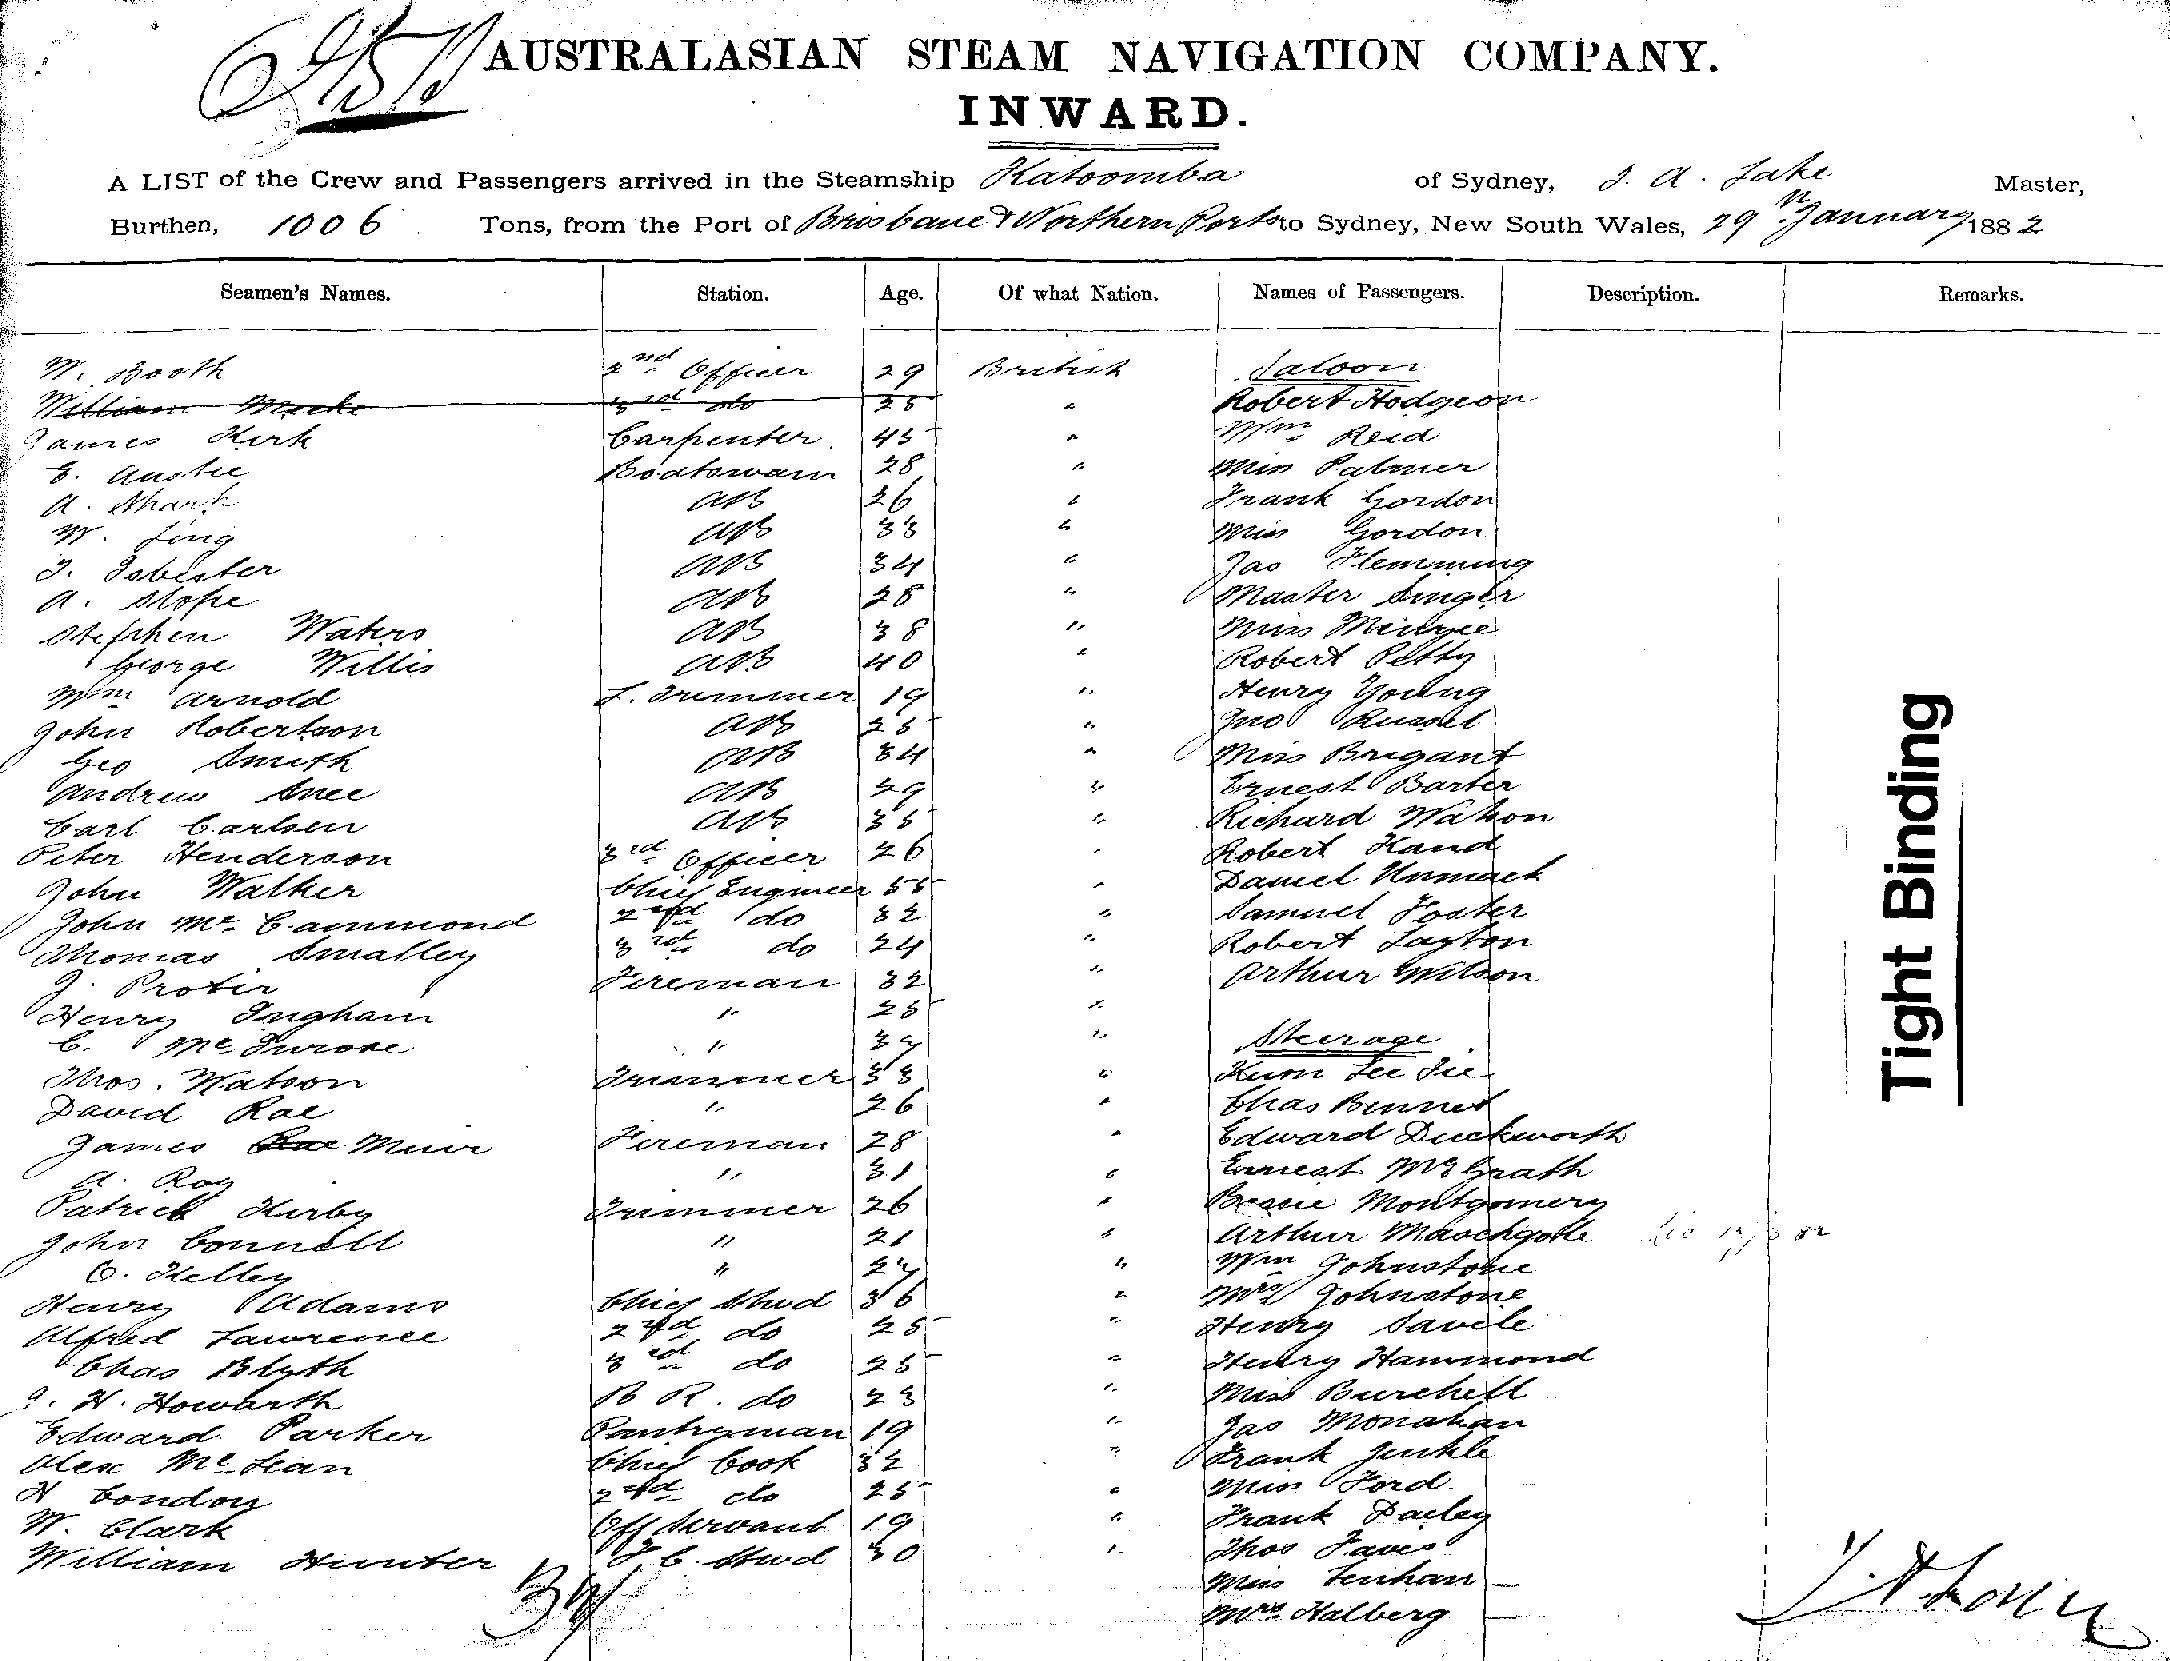 AUSTRALASIAN STEAM NAVIGATION COMPANY.
INWARD.
A LIST of the Crew and Passengers arrived in the Steamship Katoomba of Sydney, J. A. Lake Master,
Burthen, 1006 Tons, from the Port of Brisbane & Northern Ports to Sydney, New South Wales, 29th January 1882
Seamen's Names. Station. Age. Of what Nation. Names of Passengers. Description. Remarks.
W. Booth 2nd Officer 29 British Saloon
William 3rd do 25 " Robert Hodgson
James Kirk Carpenter 45 " Wm Reid
E. Austie Boatswain 28 " Miss Palmer
A. Sharp AB 26 " Frank Gordon
W. Ling AB 33 " Miss Gordon
J. Isbester AB 34 " Jas Flemming
A. Slope AB 28 " Master Singer
Stephen Waters AB 38 " Miss
George Willis AB 40 " Robert Petty
Wm Arnold L. Trimmer 19 " Henry Young
John Robertson AB 25 " Jno Russel
Geo Smith AB 34 " Miss Brigant
Andrew AB 29 " Ernest Barter
Carl Carlsen AB 35 " Richard Watson
Peter Henderson 3rd Officer 26 " Robert Hand
John Walker Chief Engineer 55 " Daniel Unmack
John Mc Cammond 2nd do 32 " Samuel Foster
Thomas Smalley 3rd do 24 " Robert Layton
J. Proter Fireman 32 " Arthur Wilson
Henry Ingham " 25 "
C. Mc " 37 " Steerage
Thos. Watson Trimmer 33 " Kum Lee
David Rae " 26 " Chas Bennet
James Rae Muir Fireman 28 " Edward Duckworth
A. Roy " 31 " Ernest McGrath
Patrick Kirby Trimmer 26 " Bessie Montgomery
John Connell " 21 " Arthur
C. Kelley " 27 " Wm Johnstone
Henry Adams Chief Stwd 36 " Mrs Johnstone
Alfred Lawrence 2nd do 25 " Henry Savile
Chas Blyth 3rd do 25 " Henry Hammond
J. H. Howarth B R. do 23 " Miss Burchell
Edward Parker Pantryman 19 " Jas Monahan
Alex McLean Chief Cook 32 " Frank
H Condon 2nd do 25 " Miss Ford
W. Clark Off Servant 19 " Frank Dailey
William Hunter F. C. Stwd 30 " Thos
Miss Lenhan
39 Mrs Halberg
Tight Binding